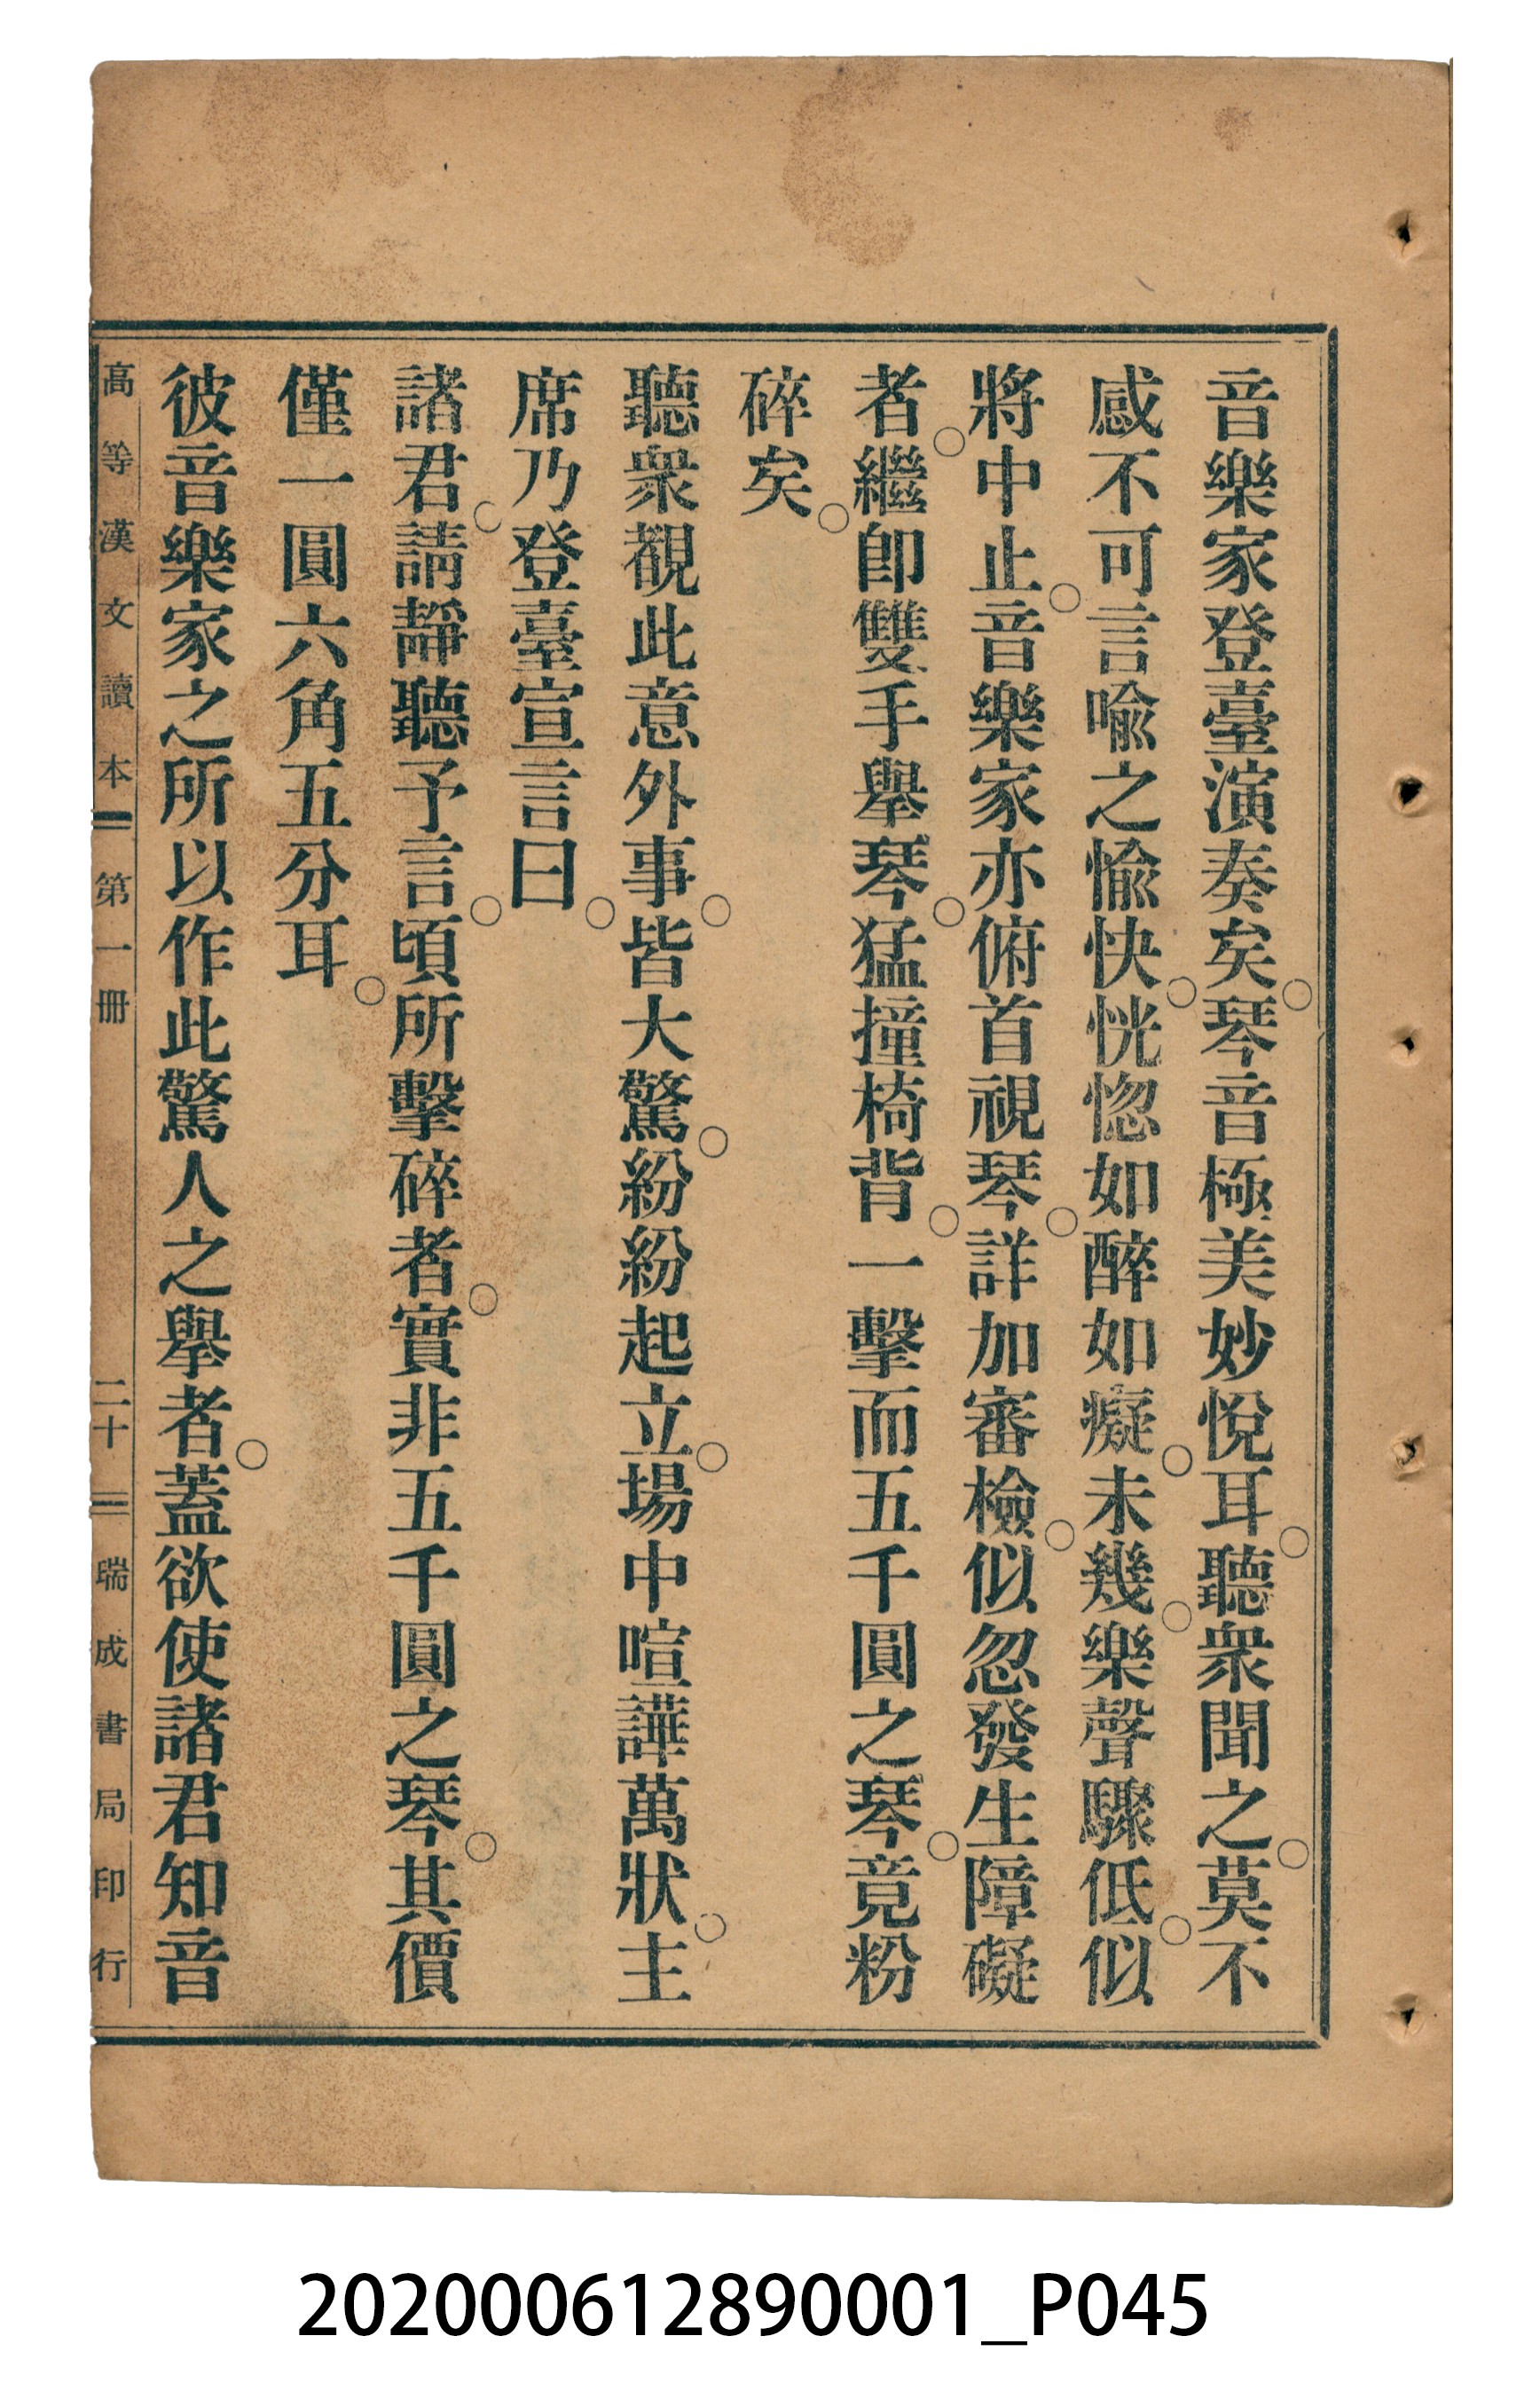 音樂家登臺演奏矣。琴音極美妙悅耳。聽衆聞之。莫不
感不可言喩之愉快。恍惚如醉如癡。未幾。樂聲驟低。似
將中止。音樂家亦俯首視琴。詳加審檢。似忽發生障礙
者。繼卽雙手舉琴。猛撞椅背。一擊而五千圓之琴。竟粉
碎矣。
聽衆覩此意外事。皆大驚。紛紛起立。場中喧譁萬狀。主
席乃登臺宣言曰。
諸君。請靜聽予言。頃所擊碎者。實非五千圓之琴。其價
僅一圓六角五分耳。
彼音樂家之所以作此驚人之舉者。蓋欲使諸君知音
高等漢文讀本 第一冊 二十 瑞成書局印行
202000612890001_P045